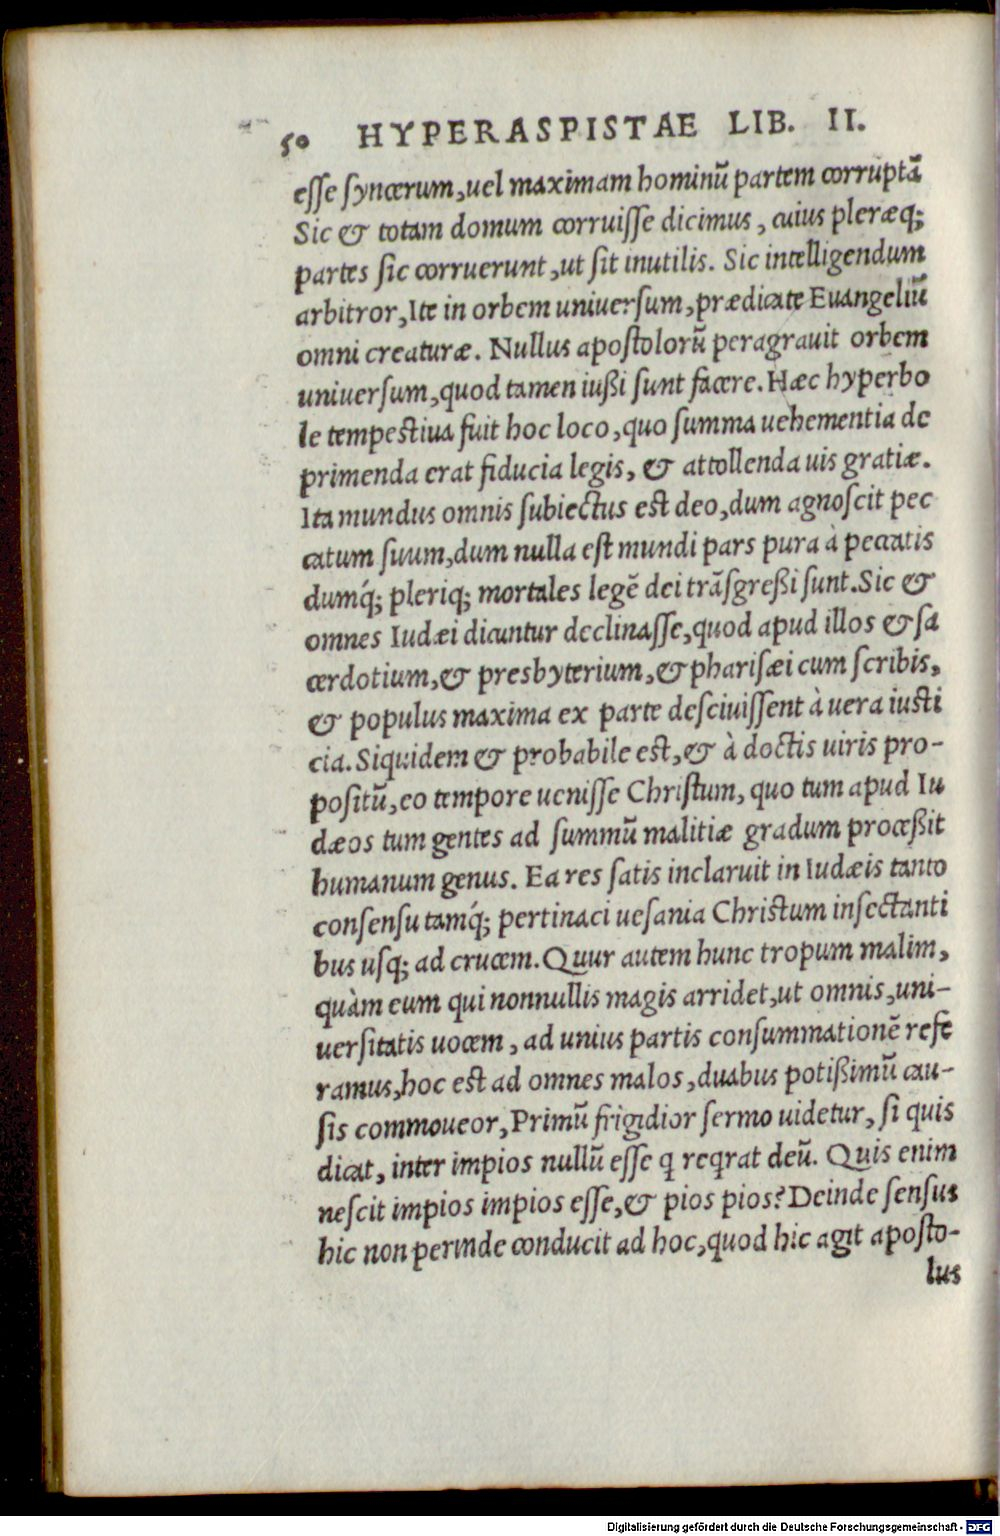 50 HYPERASPISTAE LIB. II.
esse syncerum, uel maximam hominū partem corruptā
Sic & totam domum corruisse dicimus, cuius pleræq;
partes sic corruerunt, ut sit inutilis. Sic intelligendum
arbitror, Ite in orbem uniuersum, prædicate Euangeliū
omni creaturæ. Nullus apostolorū peragrauit orbem
uniuersum, quod tamen iußi sunt facere. Hæc hyperbo
le tempestiua fuit hoc loco, quo summa uehementia de
primenda erat fiducia legis, & attollenda uis gratiæ.
Ita mundus omnis subiectus est deo, dum agnoscit pec
catum suum, dum nulla est mundi pars pura à peccatis
dumq́; pleriq; mortales legē dei trāsgreßi sunt. Sic &
omnes Iudæi dicuntur declinasse, quod apud illos & sa
cerdotium, & presbyterium, & pharisæi cum scribis,
& populus maxima ex parte desciuissent à uera iusti
cia. Siquidem & probabile est, & à doctis uiris pro-
positū, eo tempore uenisse Christum, quo tum apud Iu
dæos tum gentes ad summū malitiæ gradum proceßit
humanum genus. Ea res satis inclaruit in Iudæis tanto
consensu tamq́; pertinaci uesania Christum insectanti
bus usq; ad crucem. Quur autem hunc tropum malim,
quàm eum qui nonnullis magis arridet, ut omnis, uni-
uersitatis uocem, ad unius partis consummationē refe
ramus, hoc est ad omnes malos, duabus potißimū cau-
sis commoueor, Primū frigidior sermo uidetur, si quis
dicat, inter impios nullū esse q reqrat deū. Quis enim
nescit impios impios esse, & pios pios? Deinde sensus
hic non perinde conducit ad hoc, quod hic agit aposto-
lus
Digitalisierung gefördert durch die Deutsche Forschungsgemeinschaft - DFG